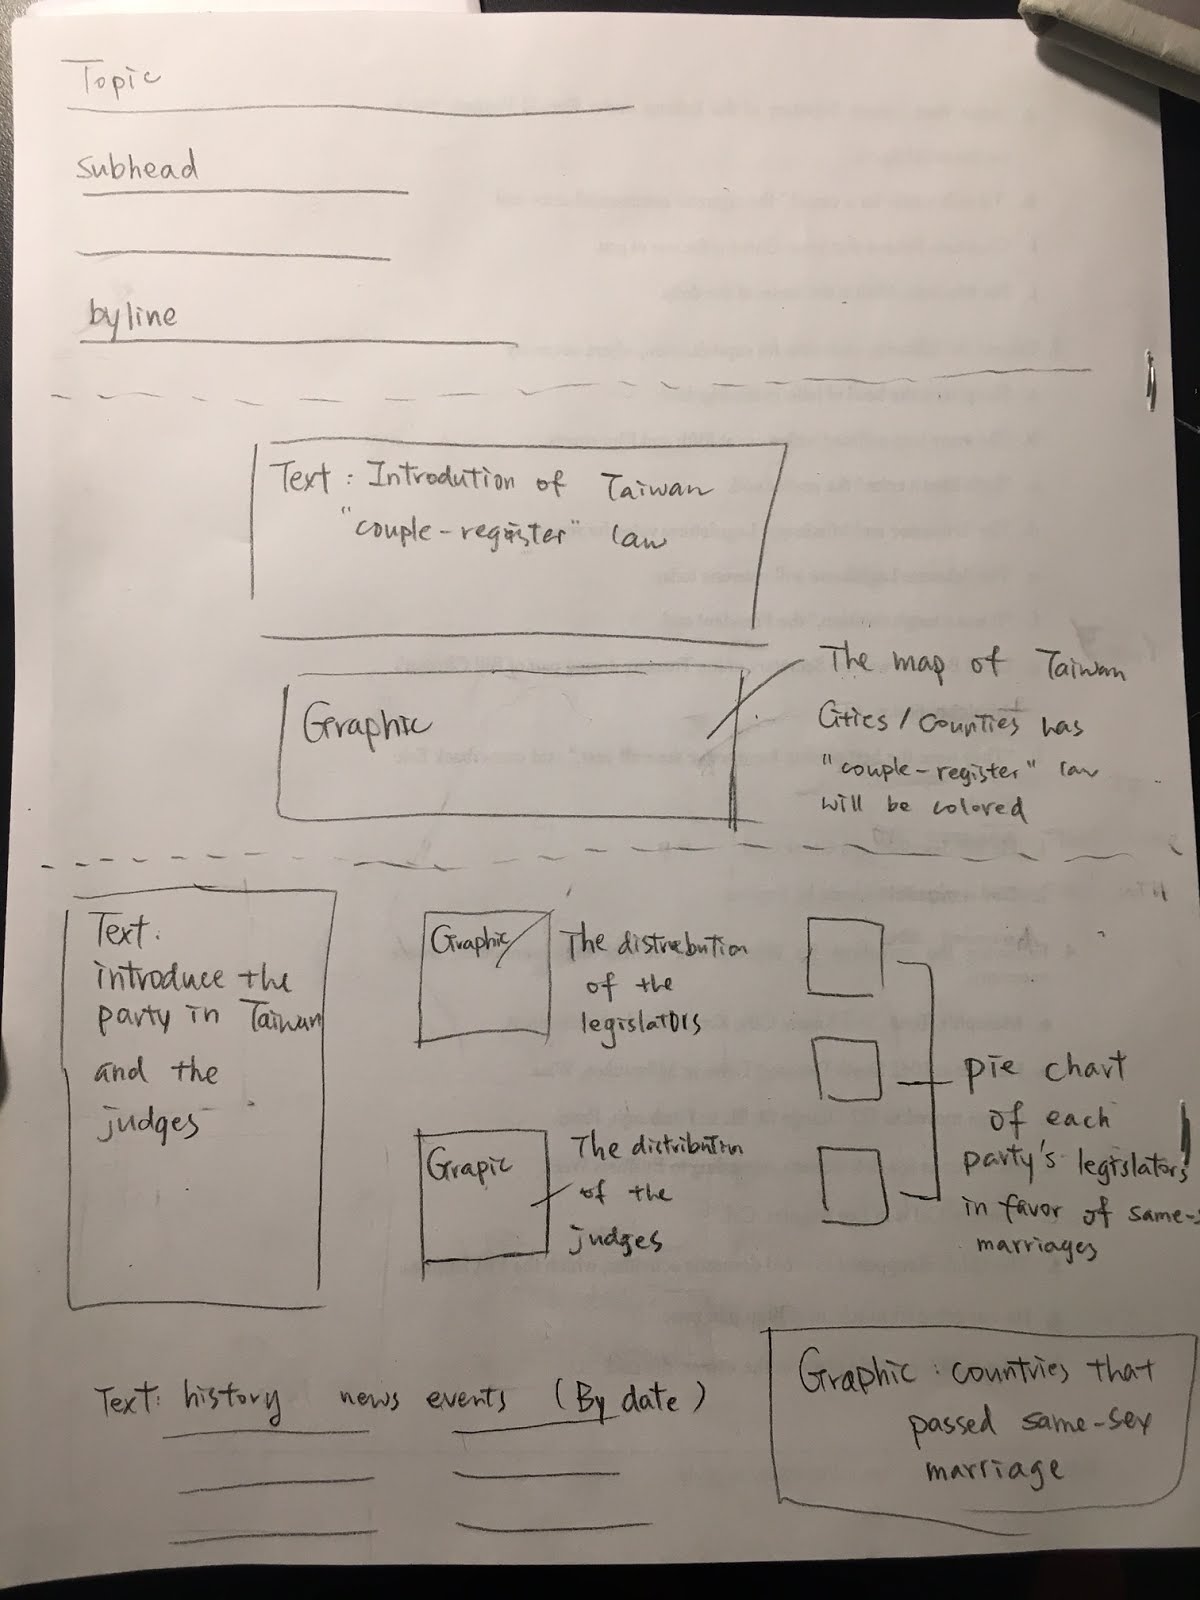 Topic
subhead
byline
Text : Introdution of Taiwan
"couple-register" law
Graphic
The map of Taiwan
Cities / Counties has
"couple-register" law
will be colored
Text:
introduce the
party in Taiwan
and the
judges
Graphic
The distrebution
of the
legislators
Grapic
The distribution
of the
judges
pie chart
of each
party's legislators
in favor of same-s
marriages
Text: history news events (By date)
Graphic : countries that
passed same-sex
marriage